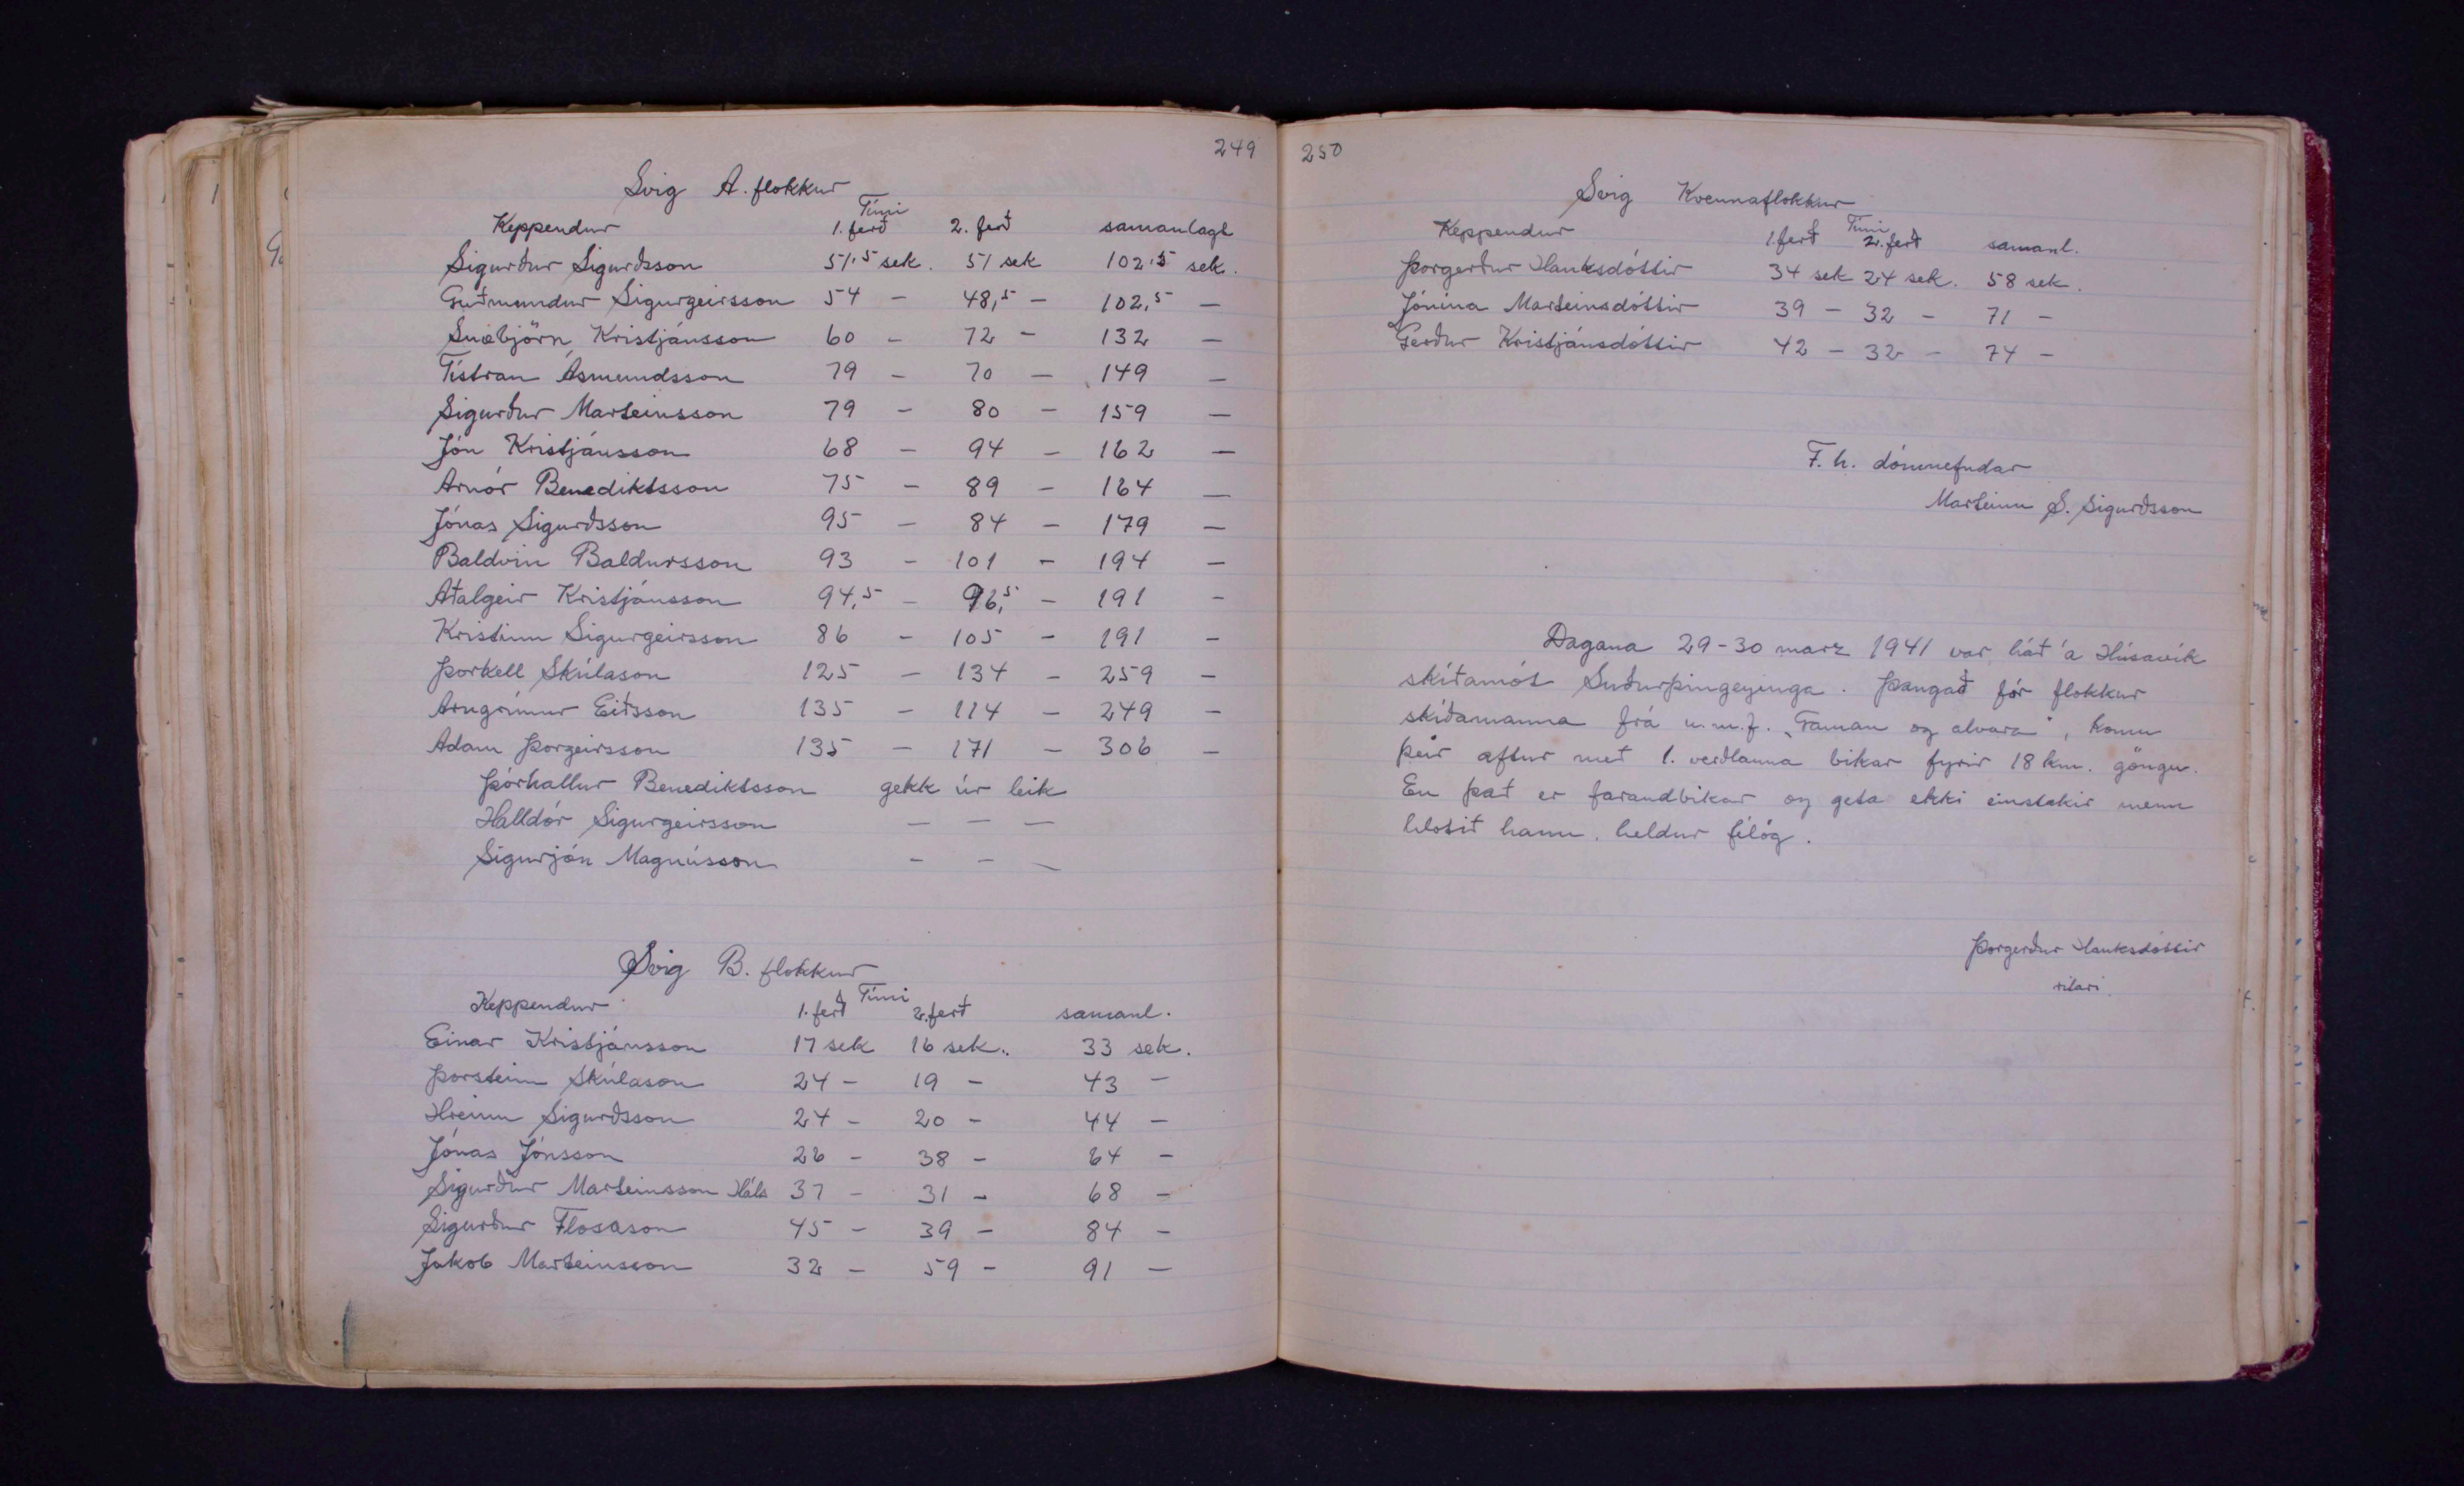 249
Svig A. flokkur
Tími
Keppendur 1. ferð 2. ferð samanlagt
Sigurður Sigurðsson 51,5 sek. 51 sek 102,5 sek.
Guðmundur Sigurgeirsson 54 - 48,5 - 102,5 -
Snæbjörn Kristjánsson 60 - 72 - 132 -
Tístran Ásmundsson 79 - 70 - 149 -
Sigurður Marteinsson 79 - 80 - 159 -
Jón Kristjánsson 68 - 94 - 162 -
Arnór Benediktsson 75 - 89 - 164 -
Jónas Sigurðsson 95 - 84 - 179 -
Baldvin Baldursson 93 - 101 - 194 -
Aðalgeir Kristjánsson 94,5 - 96,5 - 191 -
Kristinn Sigurgeirsson 86 - 105 - 191 -
Þorkell Skúlason 125 - 134 - 259 -
Arngrímur Eiðsson 135 - 114 - 249 -
Adam Þorgeirsson 135 - 171 - 306 -
Þórhallur Benediktsson gekk úr leik
Halldór Sigurgeirsson - - -
Sigurjón Magnússon - - -
Svig B. flokkur
Tími
Keppendur 1. ferð 2. ferð samanl.
Einar Kristjánsson 17 sek 16 sek. 33 sek.
Þorsteinn Skúlason 24 - 19 - 43 -
Hreinn Sigurðsson 24 - 20 - 44 -
Jónas Jónsson 26 - 38 - 64 -
Sigurður Marteinsson Háls 37 - 31 - 68 -
Sigurður Flosason 45 - 39 - 84 -
Jakob Marteinsson 32 - 59 - 91 -
250
Svig Kvennaflokkur
Tími
Keppendur 1. ferð 2. ferð samanl.
Þorgerður Hauksdóttir 34 sek 24 sek. 58 sek.
Jónína Marteinsdóttir 39 - 32 - 71 -
Gerður Kristjánsdóttir 42 - 32 - 74 -
F. h. dómnefndar
Marteinn S. Sigurðsson
Dagana 29-30 marz 1941 var háð á Húsavík
skíðamót Suðurþingeyinga. Þangað fór flokkur
skíðamanna frá u.m.f. „Gaman og alvara", komu
þeir aftur með 1. verðlauna bikar fyrir 18 km. göngu.
En það er farandbikar og geta ekki einstakir menn
hlotið hann, heldur félög.
Þorgerður Hauksdóttir
ritari.